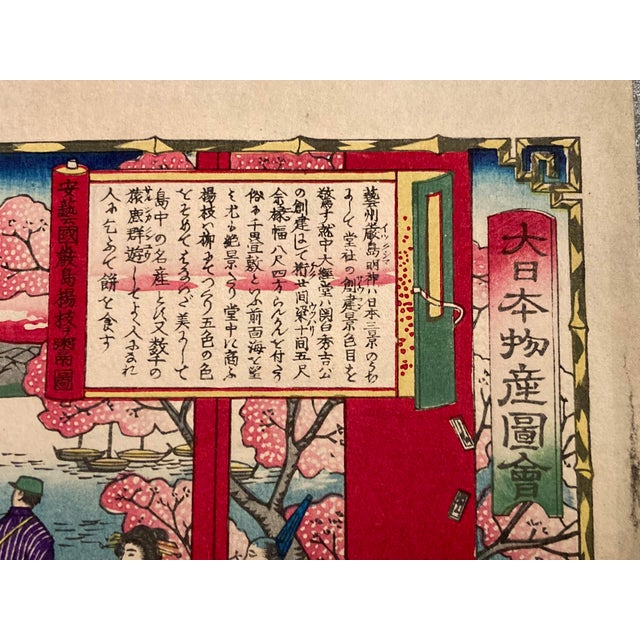 大日本物産圖會
安藝國嚴島楊枝ヲ鬻图
藝州嚴島明神ハ日本三景のうち
まして堂社の創建景色目を
驚す就中大經堂ハ関白秀吉公
の創建にて桁廿間梁十間五尺
余椽幅八尺四方らんかんを付
俗に千畳敷といふ前面海を望
み尤も絶景たり堂中に商ふ
楊枝ハ柳にてつくり五色の色
をそめてはなハだ美にして
島中の名産とす又数千の
猿鹿群遊してよく人になれ
人に乞ふて餅を食す